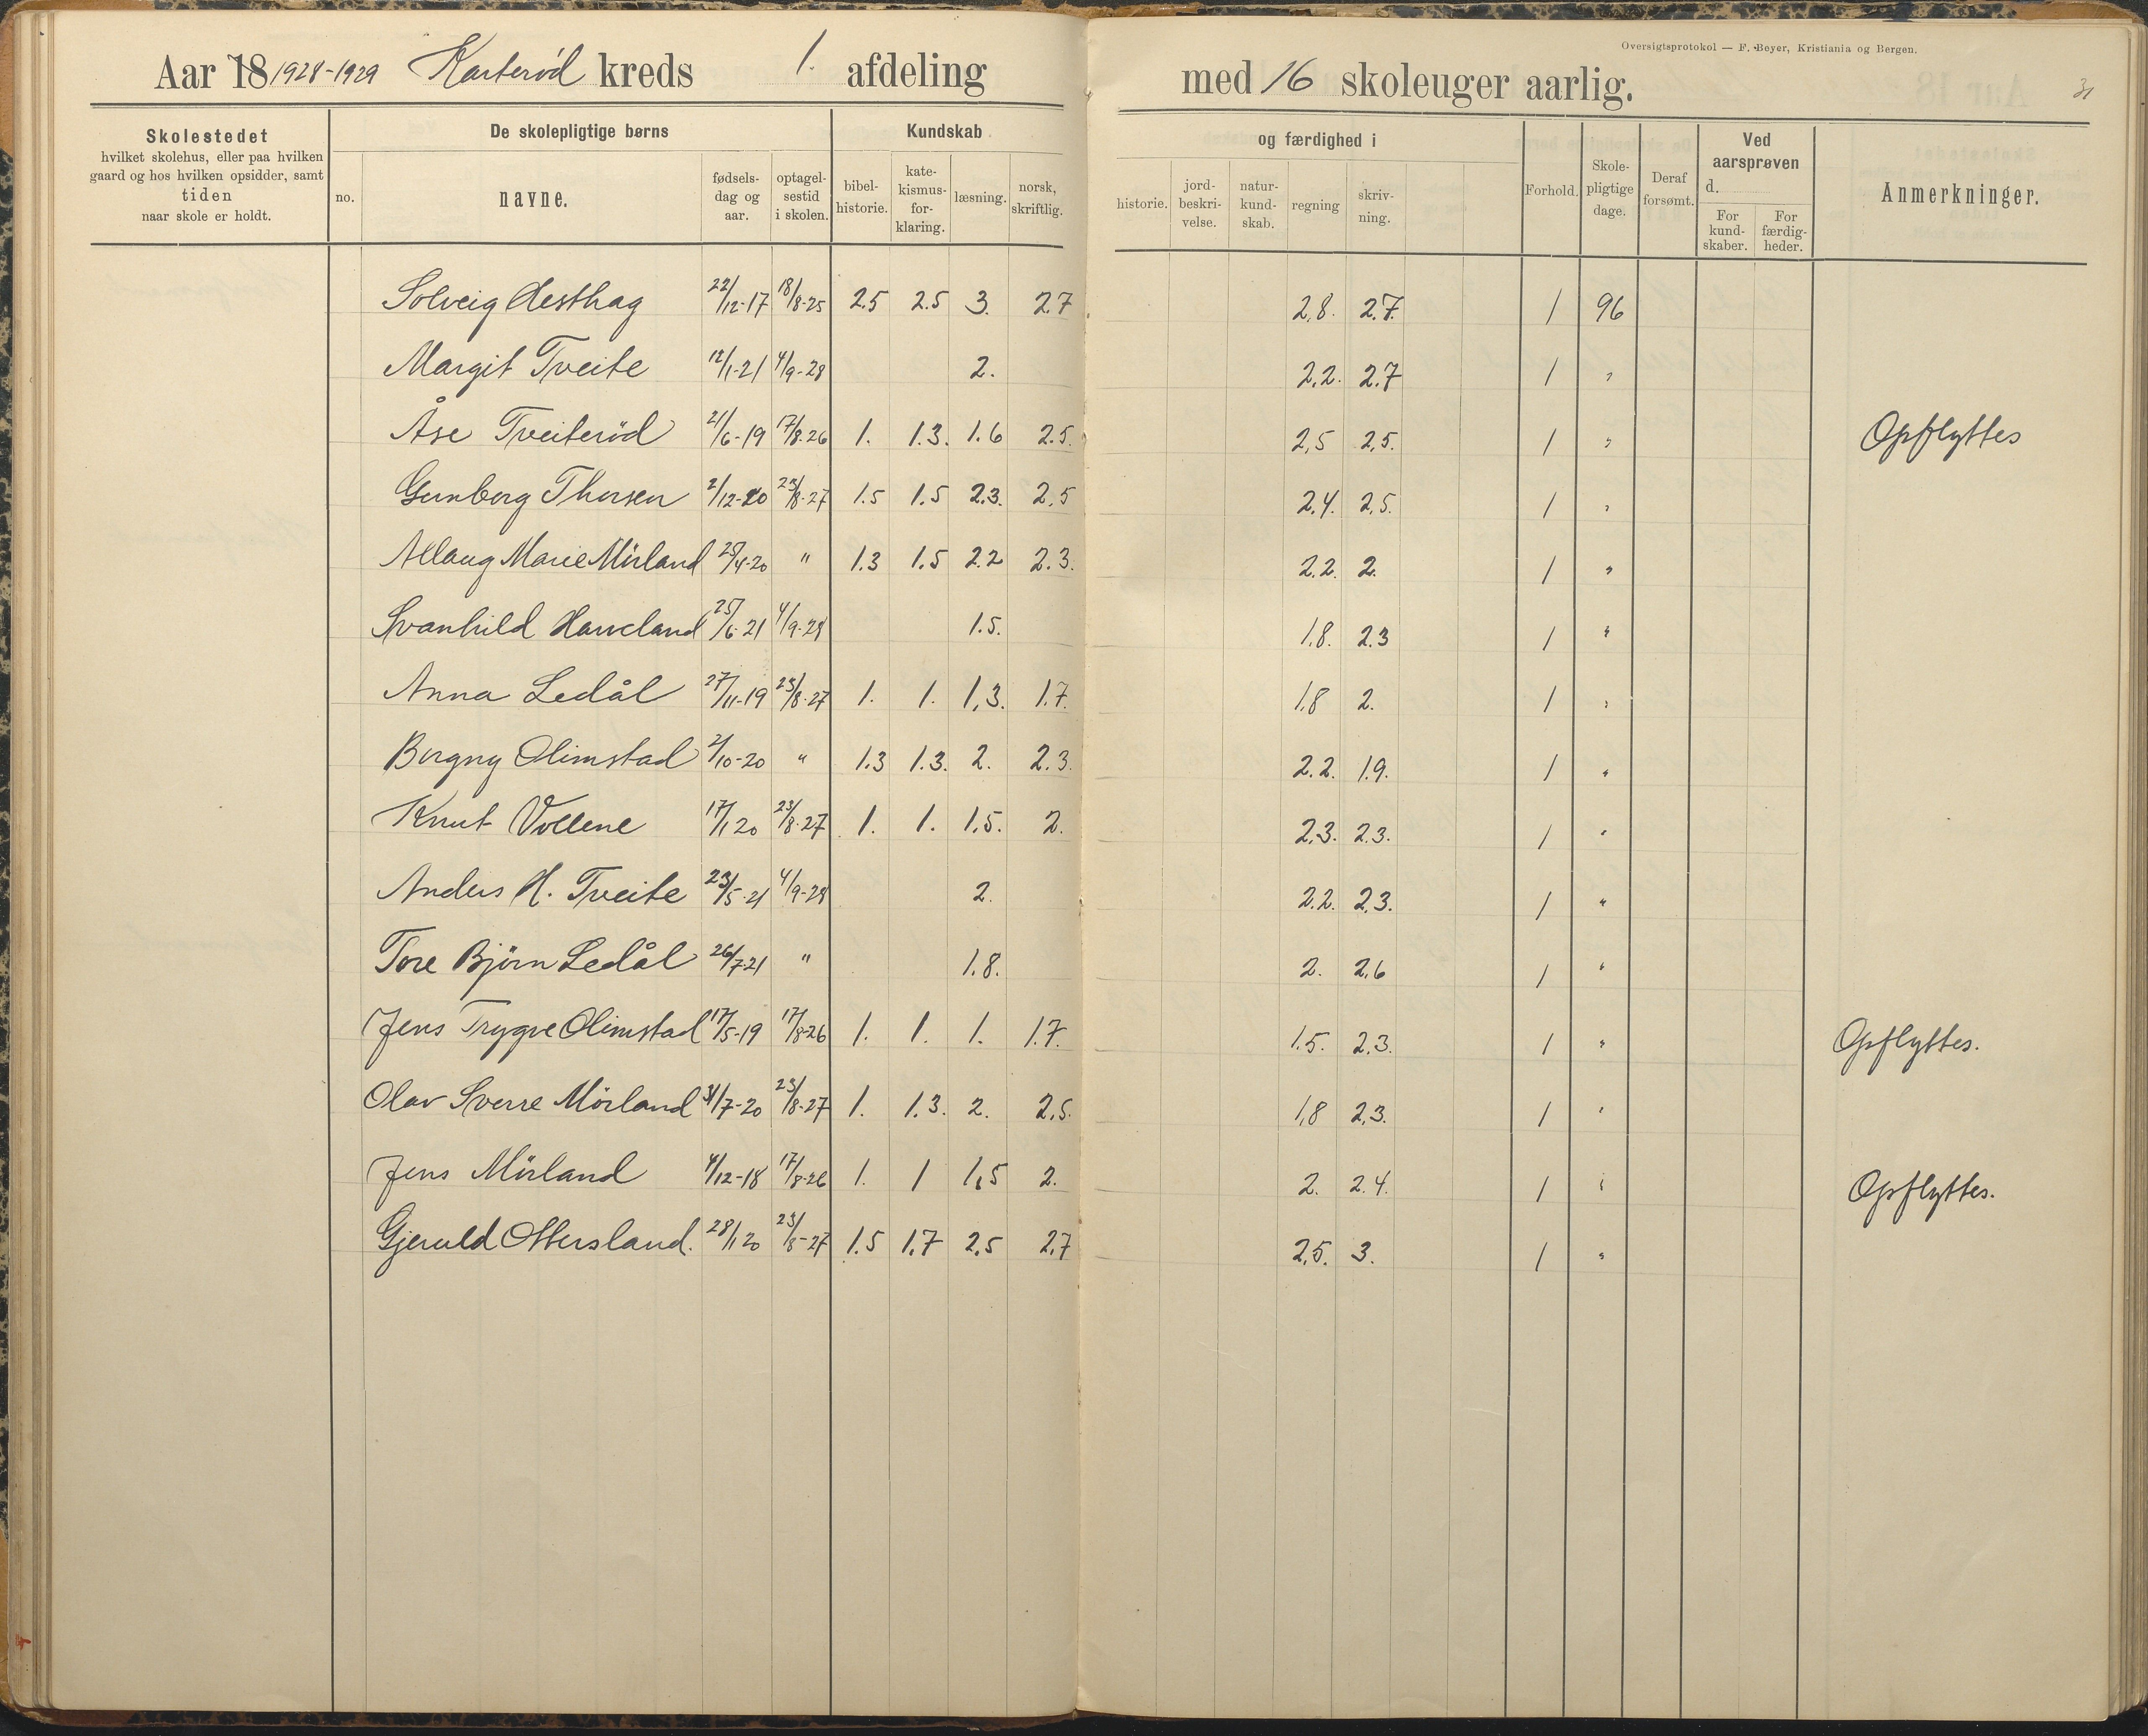 Oversigtsprotokol — F. Beyer, Kristiania og Bergen.
Aar 18 1928-1929 Karterød kreds 1. afdeling med 16 skoleuger aarlig. 31
Skolestedet hvilket skolehus, eller paa hvilken gaard og hos hvilken opsidder, samt tiden naar skole er holdt.
De skolepligtige børns
no. navne. fødsels-dag og aar. optagel-sestid i skolen.
Kundskab og færdighed i
bibel-historie. kate-kismus-for-klaring. læsning. norsk, skriftlig. historie. jord-beskri-velse. natur-kund-skab. regning skriv-ning.
Forhold. Skole-pligtige dage. Deraf forsømt.
Ved aarsprøven d.
For kund-skaber. For færdig-heder.
Anmerkninger.
Solveig Hesthag 22/12-17 18/8-25 2.5 2.5 3. 2.7 2.8. 2.7. 1 96
Margit Tveite 12/1-21 4/9-28 2. 2.2. 2.7 1 "
Åse Tveiterød 21/6-19 17/8-26 1. 1.3. 1.6 2.5. 2,5 2,5. 1 " Opflyttes
Gunborg Thorsen 2/12-20 23/8-27 1.5 1.5 2.3. 2.5 2.4. 2,5. 1 "
Allaug Marie Mörland 25/4-20 " 1.3 1.5 2.2 2.3. 2.2. 2. 1 "
Svanhild Haveland 25/6-21 4/9-28 1.5. 1.8. 2.3 1 "
Anna Ledål 27/11-19 23/8-27 1. 1. 1,3. 1.7. 1.8 2. 1 "
Borgny Olimstad 2/10-20 " 1.3 1.3. 2. 2.3. 2.2. 1.9. 1 "
Knut Vollene 17/1 20 23/8-27 1. 1. 1.5. 2. 2.3. 2.3. 1 "
Anders H. Tveite 23/5-21 4/9-28 2. 2.2. 2.3. 1 "
Tore Björn Ledål 26/7-21 " 1.8. 2. 2.6 1 "
Jens Trygve Olimstad 17/5-19 17/8-26 1. 1. 1. 1.7. 1.5. 2.3. 1 " Opflyttes.
Olav Sverre Mörland 31/7-20 23/8-27 1. 1.3. 2. 2.5. 1,8 2,3. 1 "
Jens Mörland 4/12-18 17/8-26 1. 1 1,5 2. 2. 2.4. 1 " Opflyttes.
Gjeruld Ottersland. 28/1 20 23/8-27 1.5 1.7 2.5 2.7 2,5. 3. 1 "